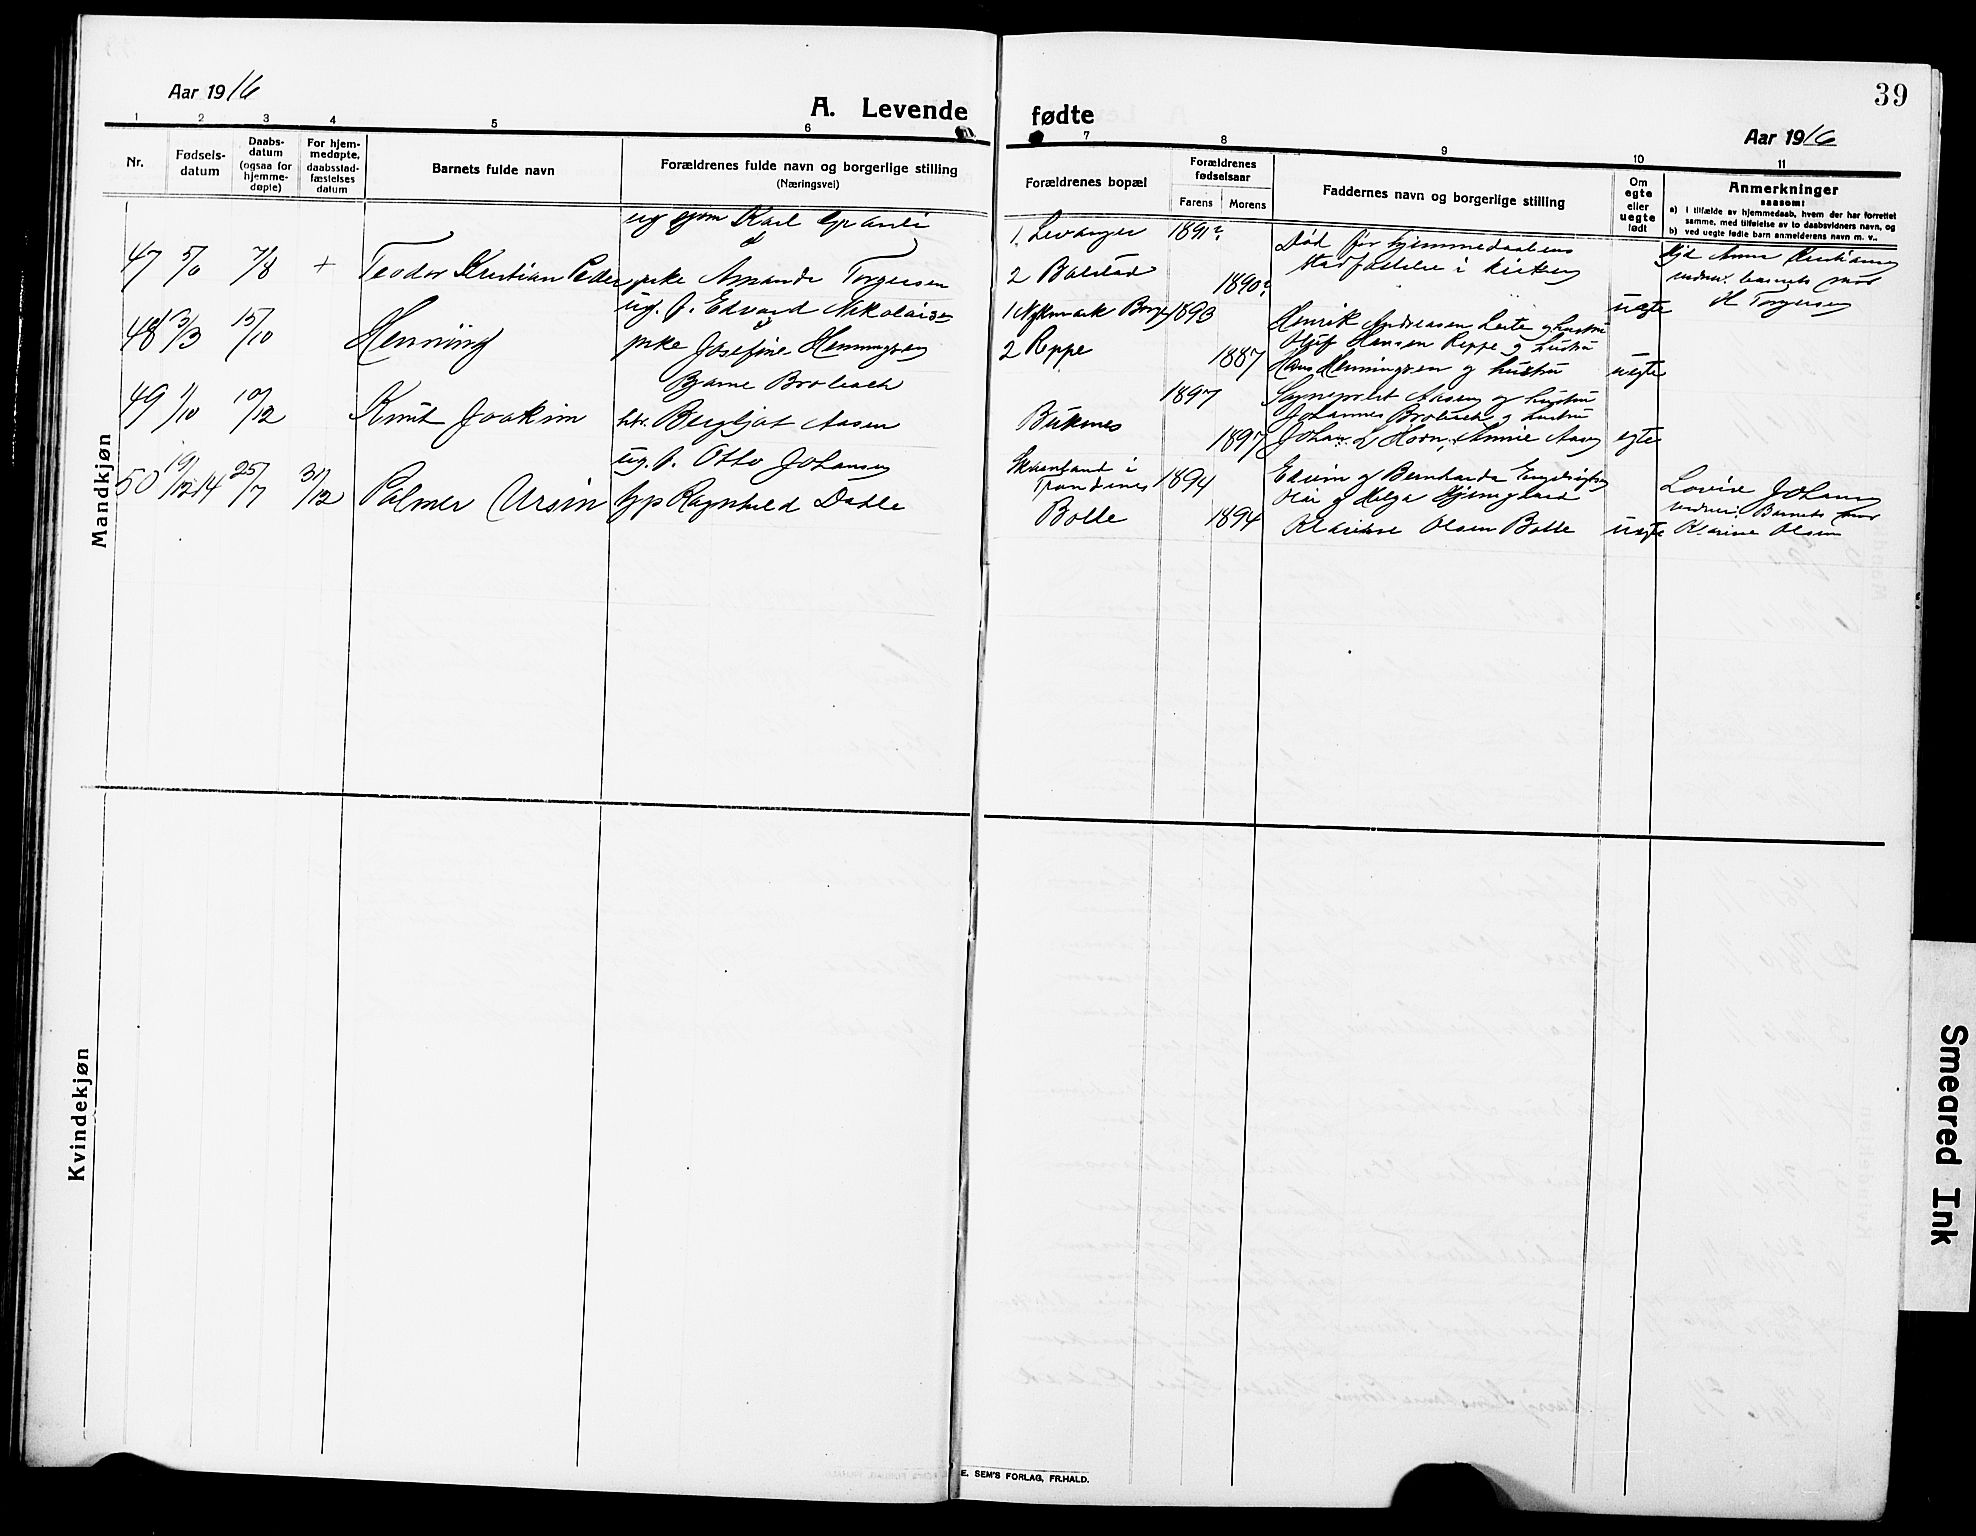 39
Aar 1916
A. Levende fødte
Aar 1916
1 2 3 4 5 6 7 8 9 10 11
Nr.
Fødsels-
datum
Daabs-
datum
(ogsaa for
hjemme-
døpte)
For hjem-
medøpte,
daabsstad-
fæstelses
datum
Barnets fulde navn
Forældrenes fulde navn og borgerlige stilling
(Næringsvei)
Forældrenes bopæl
Forældrenes
fødselsaar
Farens Morens
Faddernes navn og borgerlige stilling
Om
egte
eller
uegte
født
Anmerkninger
saasom:
a) I tilfælde av hjemmedaab, hvem der har forrettet
samme, med tilføielse av to daabsvidners navn, og
b) ved uegte fødte barn anmelderens navn m. v..
Mandkjøn
ug Karl
1. Levanger 1891?
Død før hjemmedaabens
stadfæstelse i kirken
47 7/8 + Teodor Kristian Peder pike Amanda Torgersen
2 Balstad 1890?
barnets mor
Torgersen
uegte
ug. f. Edvard Nikolaisen
1 Borge 1893
Henrik Andreasen Leite og hustru
48 3/3 15/10 Henning pike Josefine Henningsen
2 Reppe 1887
Oluf Hansen Reppe og hustru
Hans Henningsen og hustru uegte
Bjarne Brobach
1897
Aasen og hustru
49 1/10 10/12 Knut Joakim htr. Bergljot Aasen
Buksnes 1897
Johannes Brobach og hustru
Johan L Horn, Annie Aasen egte
ug. f. Otto Johansen
i
Trondenes 1894
Edvin og Bernharda
50 19/12-14 25/7 31/12 Palmer Ursin Ragnhild Dahle
Bolle 1894
og Helga
Klarisse Olsen Bolle uegte
Lovise Johansen
Barnets mor
Klarisse Olsen
Kvindekjøn
E. SEM'S FORLAG, FR.HALD.
Smeared Ink